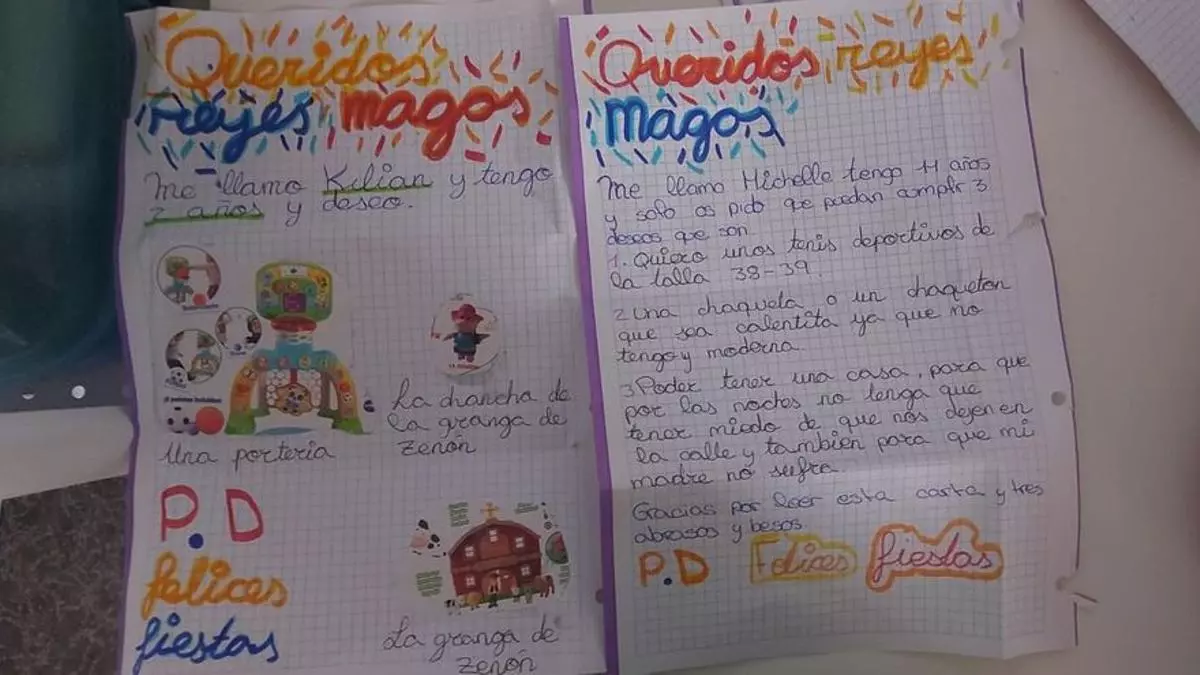 Queridos
reyes magos
Me llamo Kilian y tengo
2 años y deseo.
Una porteria
La chancha de
la granga de
Zenón
La granga de
Zenón
P.D
felices
fiestas
Queridos reyes
Magos
Me llamo Michelle tengo 11 años
y solo os pido que puedan cumplir 3
deseos que son
1. Quiero unos tenis deportivos de
la talla 38-39.
2 Una chaqueta o un chaqueton
que sea calentita ya que no
tengo y moderna.
3. Poder tener una casa, para que
por las noches no tenga que
tener miedo de que nos dejen en
la calle y tambien para que mi
madre no sufre.
Gracias por leer esta carta y tres
abrasos y besos.
P.D Felices fiestas